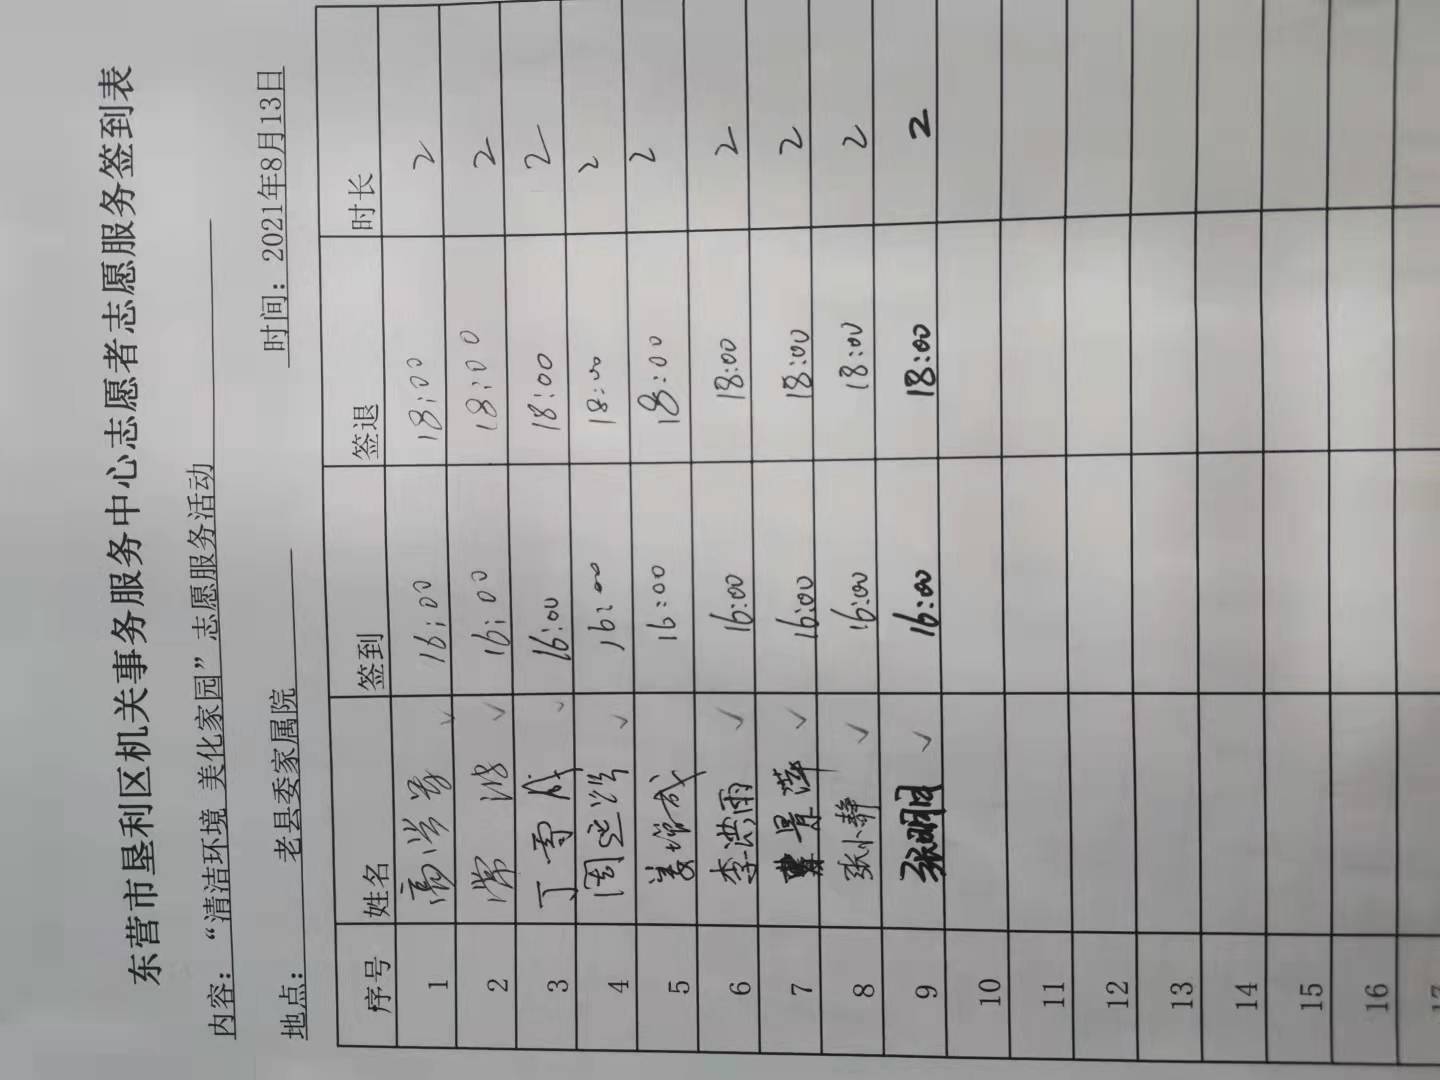 东营市垦利区机关事务服务中心志愿者志愿服务签到表
内容：“清洁环境 美化家园”志愿服务活动
地点： 老县委家属院 时间：2021年8月13日
序号 姓名 签到 签退 时长
1 16:00 18:00 2
2 16:00 18:00 2
3 16:00 18:00 2
4 16:00 18:00 2
5 姜增成 16:00 18:00 2
6 李洪雨 16:00 18:00 2
7 景萍 16:00 18:00 2
8 张小静 16:00 18:00 2
9 张明 16:00 18:00 2
10
11
12
13
14
15
16
17